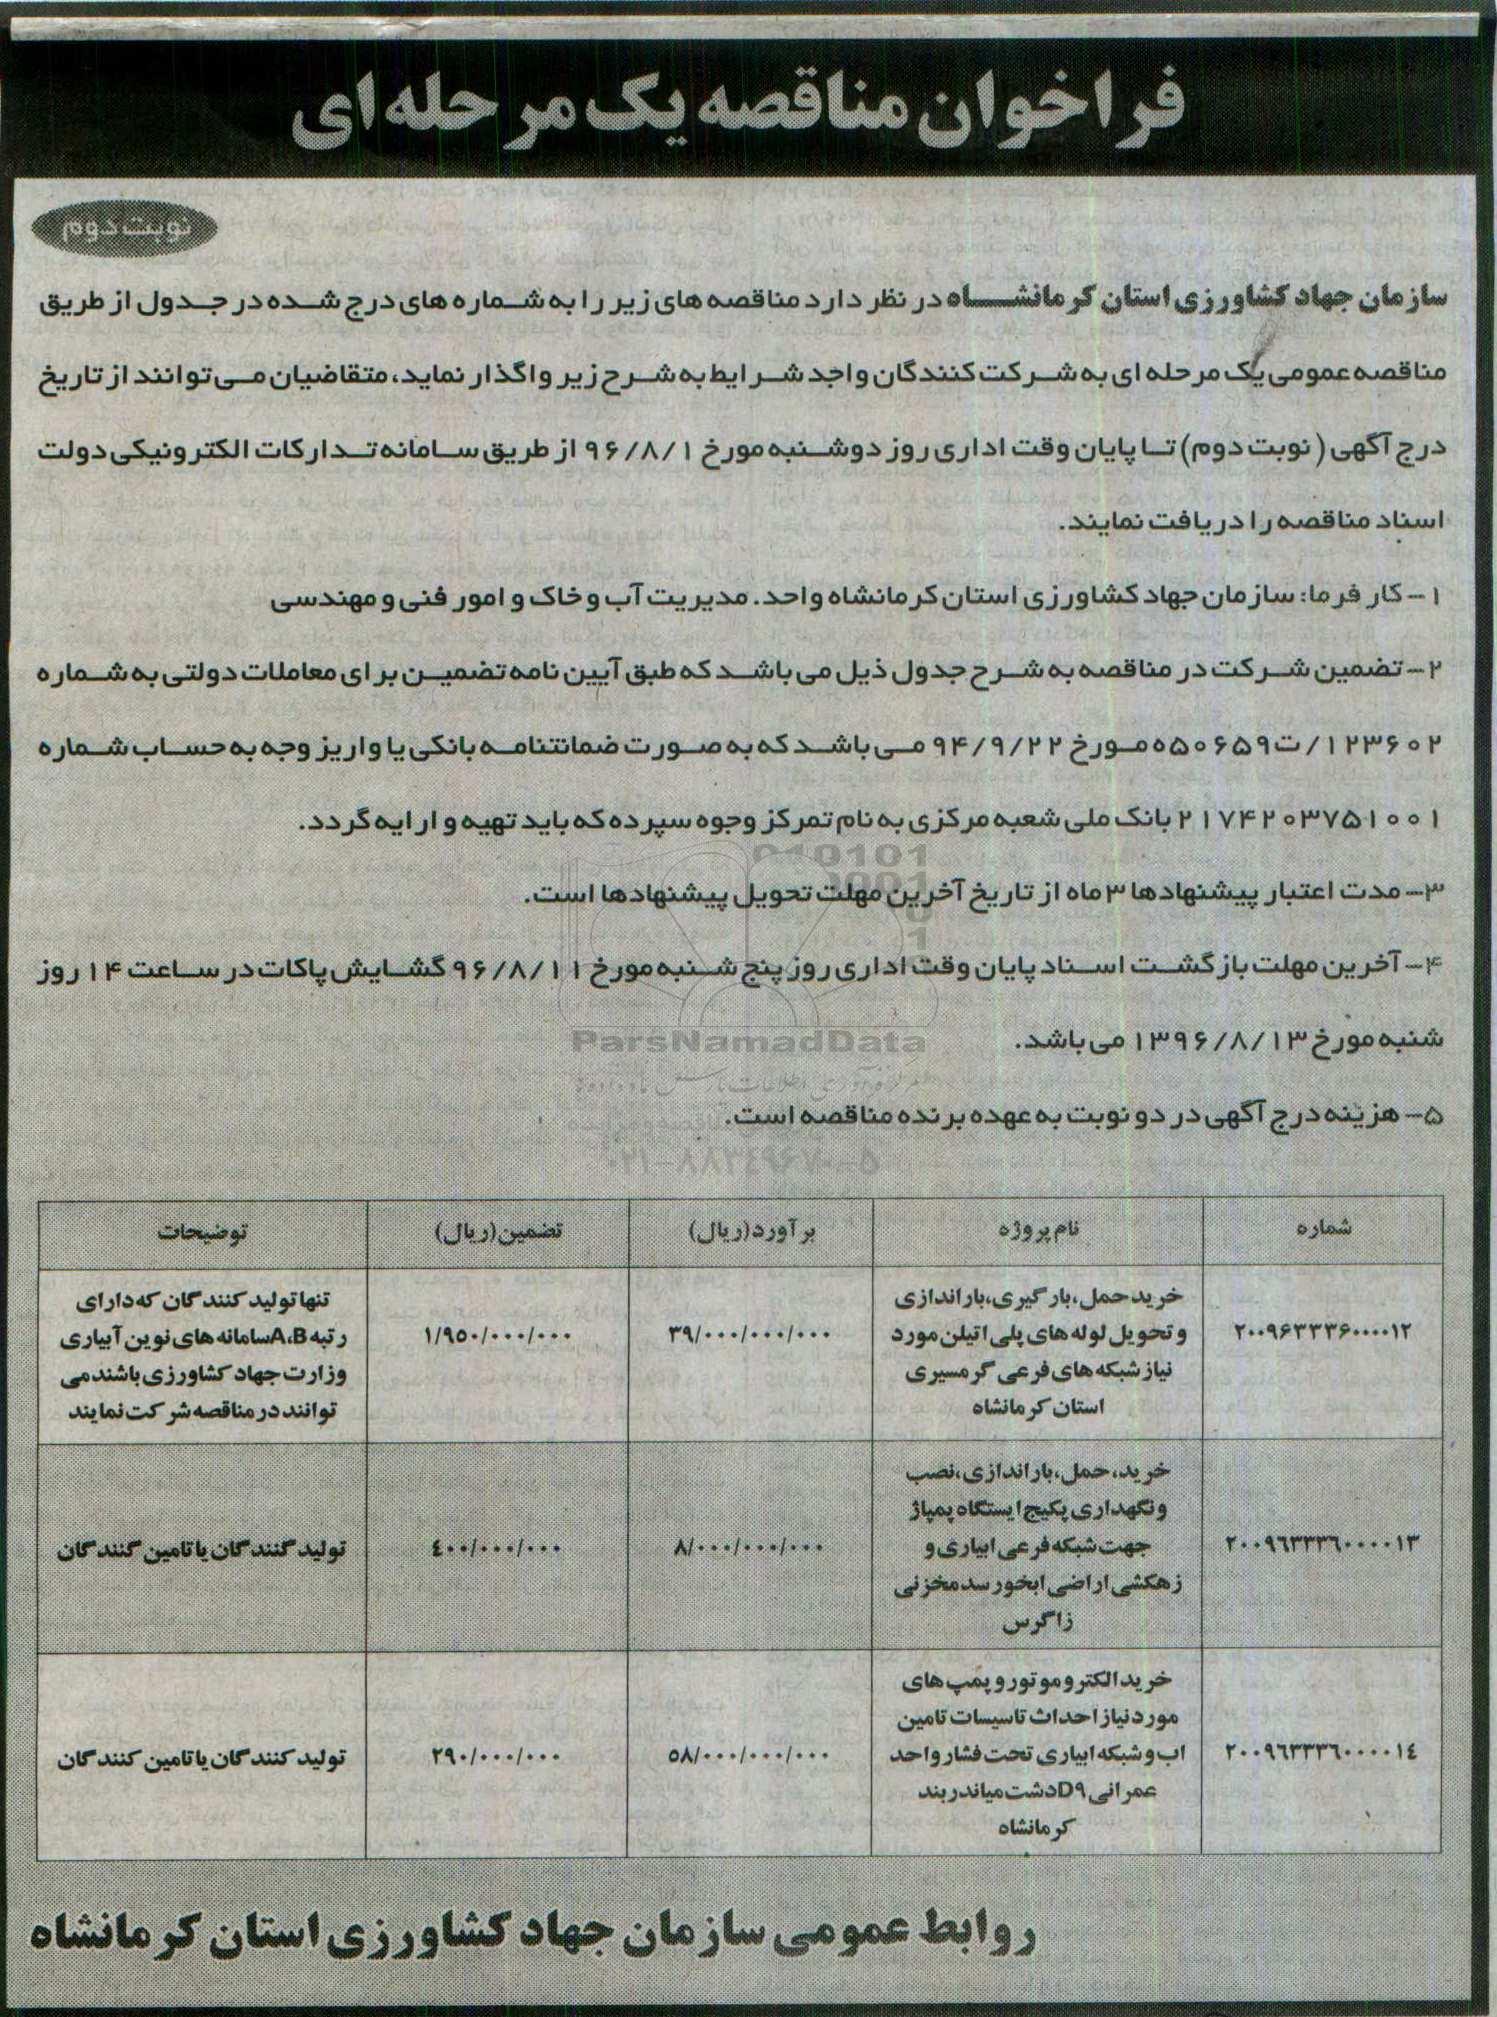 فراخوان مناقصه یک مرحله ای
نوبت دوم
سازمان جهاد کشاورزی استان کرمانشاه در نظر دارد مناقصه های زیر را به شماره های درج شده در جدول از طریق
مناقصه عمومی یک مرحله ای به شرکت کنندگان واجد شرایط به شرح زیر واگذار نماید، متقاضیان می توانند از تاریخ
درج آگهی (نوبت دوم) تا پایان وقت اداری روز دوشنبه مورخ ۹۶/۸/۱ از طریق سامانه تدارکات الکترونیکی دولت
اسناد مناقصه را دریافت نمایند.
۱- کارفرما: سازمان جهاد کشاورزی استان کرمانشاه واحد. مدیریت آب و خاک و امور فنی و مهندسی
۲- تضمین شرکت در مناقصه به شرح جدول ذیل می باشد که طبق آیین نامه تضمین برای معاملات دولتی به شماره
۱۲۳۶۰۲/ت۵۰۶۵۹ه مورخ ۹۴/۹/۲۲ می باشد که به صورت ضمانتنامه بانکی یا واریز وجه به حساب شماره
۲۱۷۴۲۰۳۷۵۱۰۰۱ بانک ملی شعبه مرکزی به نام تمرکز وجوه سپرده که باید تهیه و ارایه گردد.
۳- مدت اعتبار پیشنهادها ۳ ماه از تاریخ آخرین مهلت تحویل پیشنهادها است.
۴- آخرین مهلت بازگشت اسناد پایان وقت اداری روز پنج شنبه مورخ ۹۶/۸/۱۱ گشایش پاکات در ساعت ۱۴ روز
شنبه مورخ ۱۳۹۶/۸/۱۳ می باشد.
۵- هزینه درج آگهی در دو نوبت به عهده برنده مناقصه است.
ParsNamadData
۰۲۱-۸۸۳۴۹۶۷۰-۵
شماره نام پروژه برآورد(ریال) تضمین(ریال) توضیحات
۲۰۰۹۶۳۳۳۶۰۰۰۰۱۲
خرید حمل،بارگیری،باراندازی
و تحویل لوله های پلی اتیلن مورد
نیاز شبکه های فرعی گرمسیری
استان کرمانشاه
۳۹/۰۰۰/۰۰۰/۰۰۰
۱/۹۵۰/۰۰۰/۰۰۰
تنها تولید کنندگان که دارای
رتبه A،B سامانه های نوین آبیاری
وزارت جهاد کشاورزی باشند می
توانند در مناقصه شرکت نمایند
۲۰۰۹۶۳۳۳۶۰۰۰۰۱۳
خرید، حمل،باراندازی،نصب
و نگهداری پکیج ایستگاه پمپاژ
جهت شبکه فرعی ابیاری و
زهکشی اراضی ابخور سد مخزنی
زاگرس
۸/۰۰۰/۰۰۰/۰۰۰
۴۰۰/۰۰۰/۰۰۰
تولید کنندگان یا تامین کنندگان
۲۰۰۹۶۳۳۳۶۰۰۰۰۱۴
خرید الکتروموتور و پمپ های
مورد نیاز احداث تاسیسات تامین
اب و شبکه ابیاری تحت فشار واحد
عمرانی D۹ دشت میاندربند
کرمانشاه
۵۸/۰۰۰/۰۰۰/۰۰۰
۲۹۰/۰۰۰/۰۰۰
تولید کنندگان یا تامین کنندگان
روابط عمومی سازمان جهاد کشاورزی استان کرمانشاه